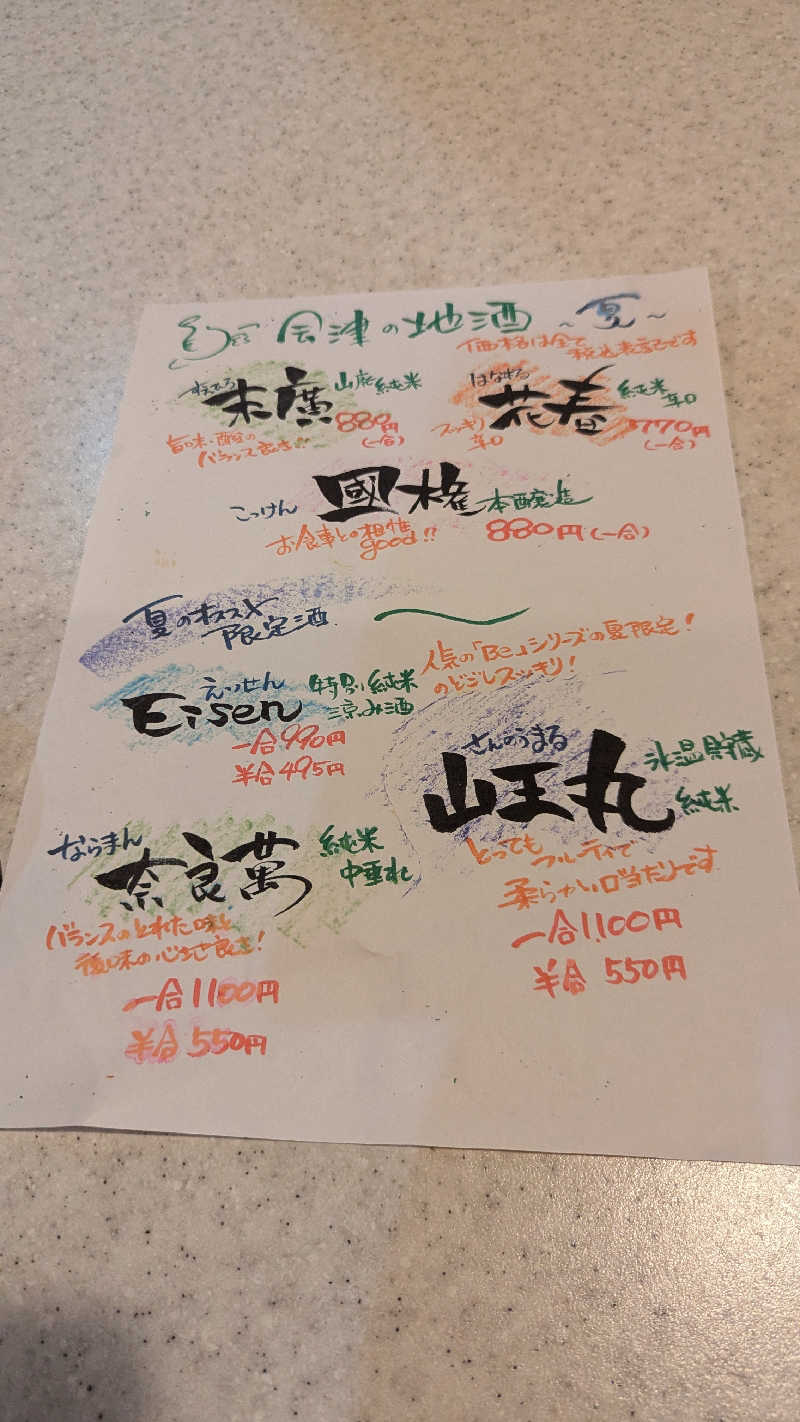 会津の地酒 ~夏~
価格は全て
税込表記です
すえひろ
末廣
山廃純米
880円
(一合)
旨味・酸の
バランス良き!!
はなはる
花春
純米
辛口
スッキリ
辛口
770円
(一合)
こっけん
國権 本醸造
お食事との相性
good!!
880円(一合)
夏のオススメ
限定酒
人気の「Be」シリーズの夏限定!
のどごしスッキリ!
えいせん
Eisen
特別純米
涼み酒
一合990円
半合495円
さんのうまる
山王丸
氷温貯蔵
純米
とっても
フルーティで
柔らかい口当たりです
一合1,100円
半合 550円
ならまん
奈良萬
純米
中垂れ
バランスのとれた味と
後味の心地良さ!
一合1100円
半合550円